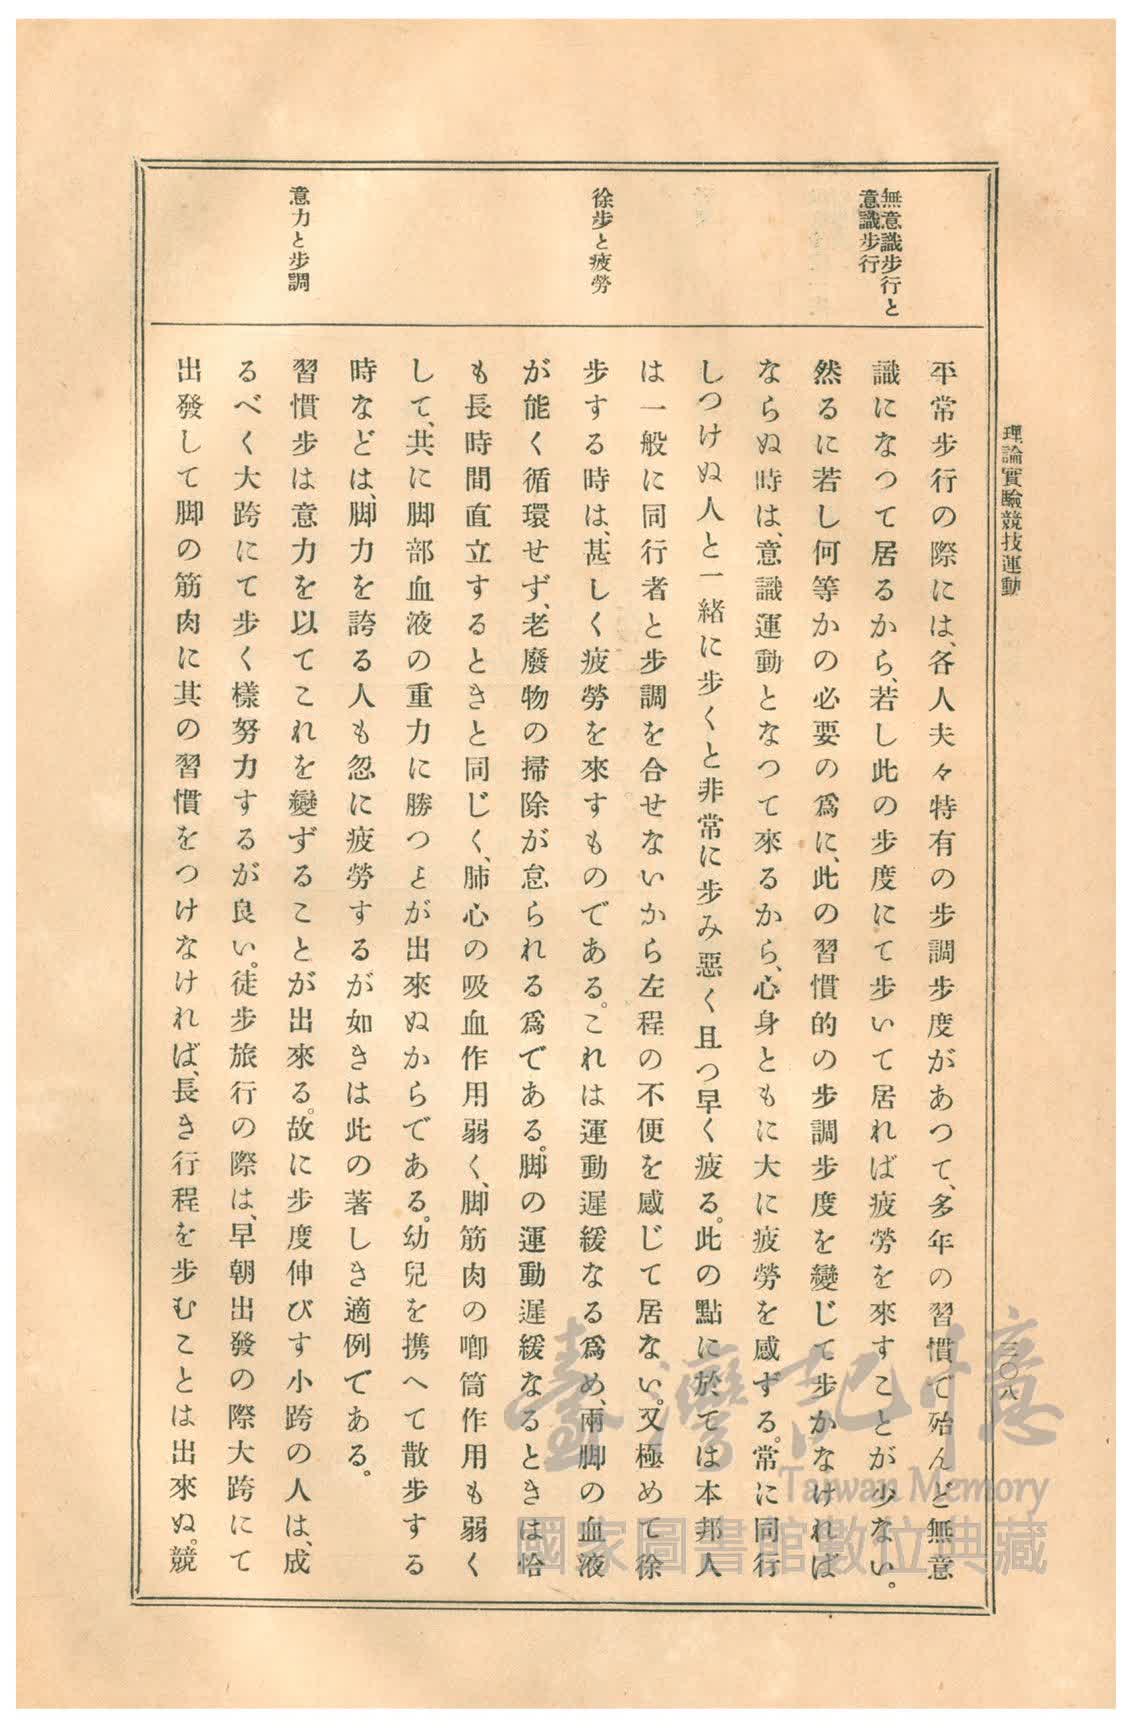 理論實驗競技運動
三〇八
無意識步行と
意識步行
徐步と疲勞
意力と步調
平常步行の際には、各人夫々特有の步調步度があつて、多年の習慣で殆んど無意
識になつて居るから、若し此の步度にて步いて居れば疲勞を來すことが少ない。
然るに若し何等かの必要の爲に、此の習慣的の步調步度を變じて步かなければ
ならぬ時は、意識運動となつて來るから、心身ともに大に疲勞を感ずる。常に同行
しつけぬ人と一緒に步くと非常に步み惡く且つ早く疲る。此の點に於ては本邦人
は一般に同行者と步調を合せないから左程の不便を感じて居ない。又極めて徐
步する時は、甚しく疲勞を來すものである。これは運動遲緩なる爲め、兩脚の血液
が能く循環せず、老廢物の掃除が怠られる爲である。脚の運動遲緩なるときは恰
も長時間直立するときと同じく、肺心の吸血作用弱く、脚筋肉の喞筒作用も弱く
して、共に脚部血液の重力に勝つとが出來ぬからである。幼兒を携へて散步する
時などは、脚力を誇る人も忽に疲勞するが如きは此の著しき適例である。
習慣步は意力を以てこれを變ずることが出來る。故に步度伸びす小跨の人は、成
るべく大跨にて步く樣努力するが良い。徒步旅行の際は、早朝出發の際大跨にて
出發して脚の筋肉に其の習慣をつけなければ、長き行程を步むことは出來ぬ。競
臺灣記憶
Taiwan Memory
國家圖書館數位典藏